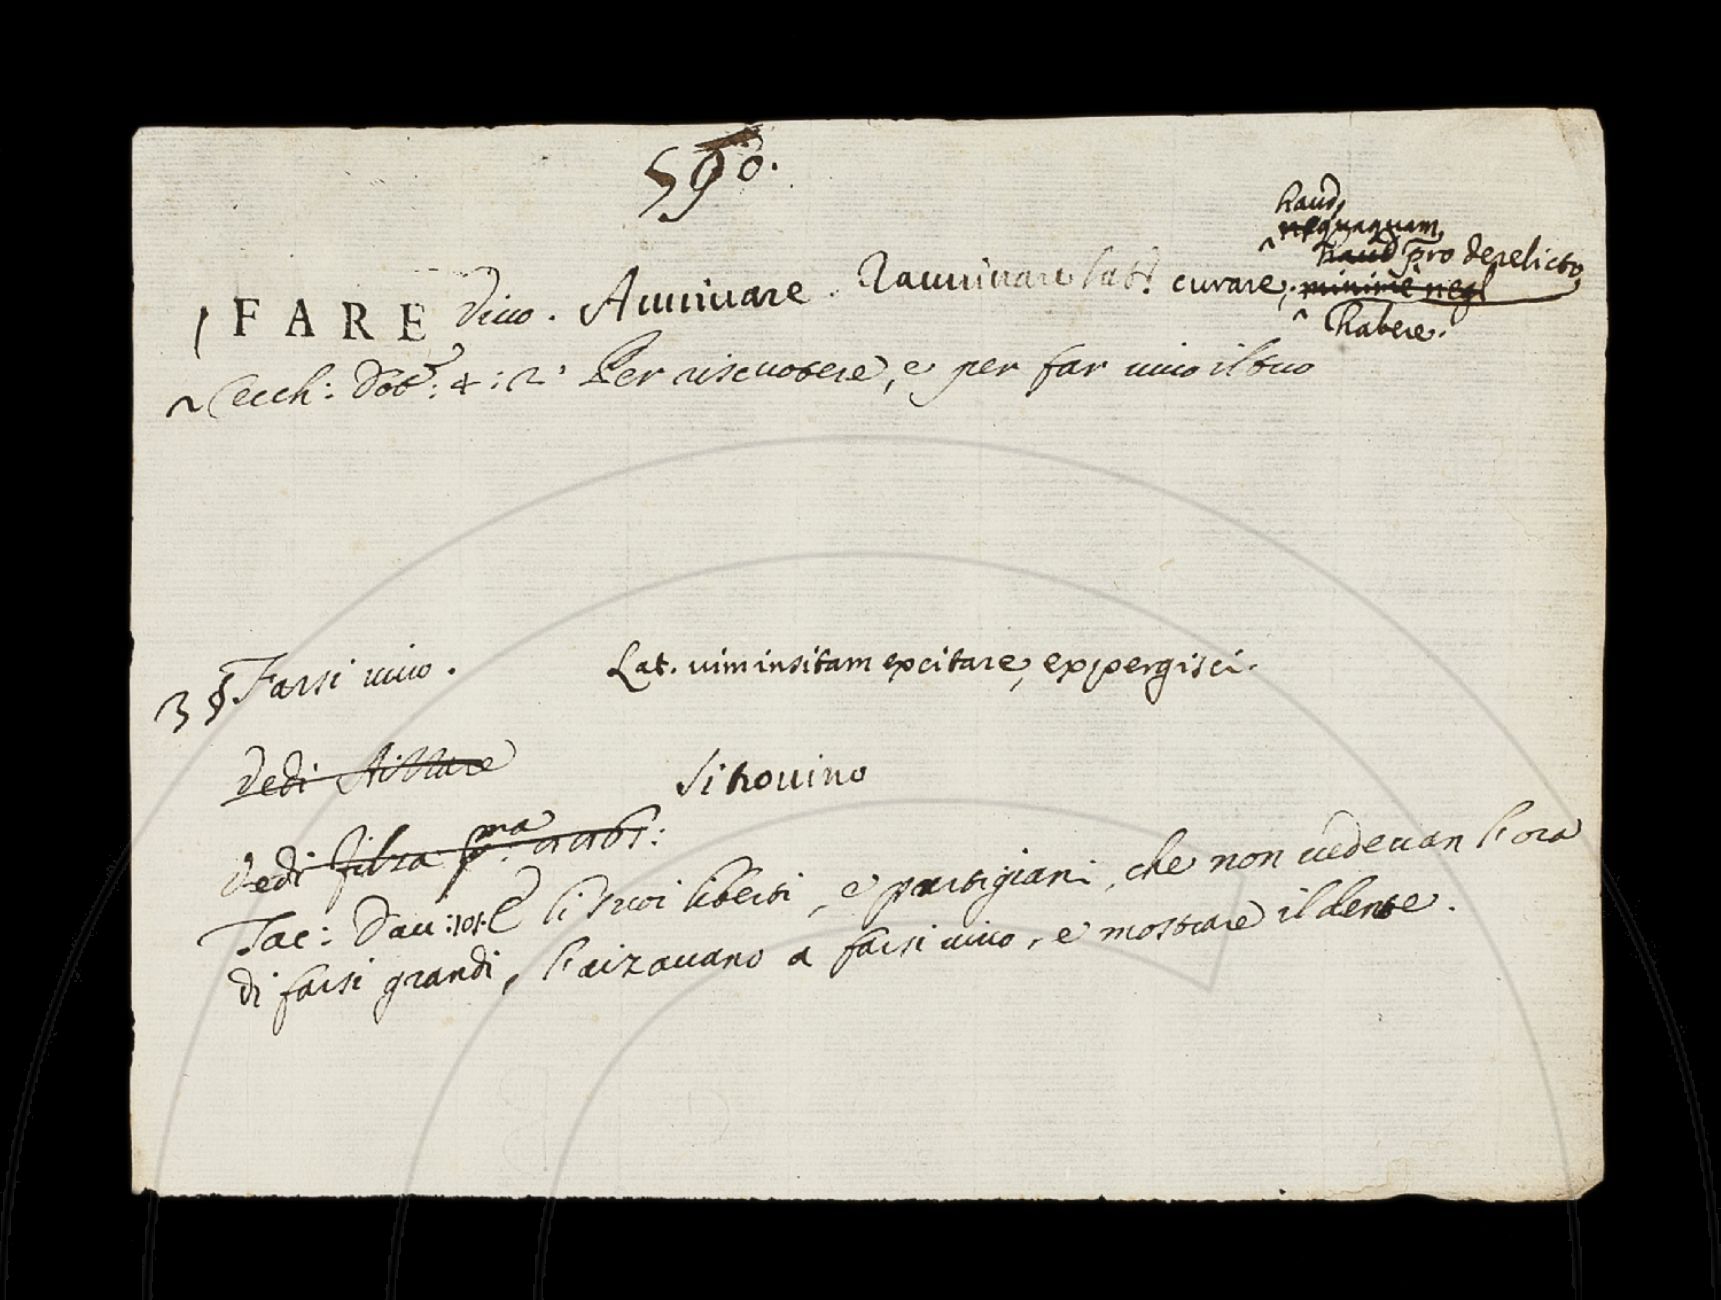 590.
haud,
nequaquam,
haud pro derelicto
FARE vivo. Avvivare. Ravvivare latt. curare, minimè negl
habere.
Cecch: Dot: 4: 2. Per riscuotere, e per far vivo il tuo
3 § Farsi vivo. Lat. vim insitam excitare, expergisci.
Vedi Aizzare
Si trovino
Vedi filza p.ma
Tac: Dav: 101. E li suoi liberti, e partigiani, che non vedevan l'ora
di farsi grandi, l'aizavano a farsi vivo, e mostrare il dente.